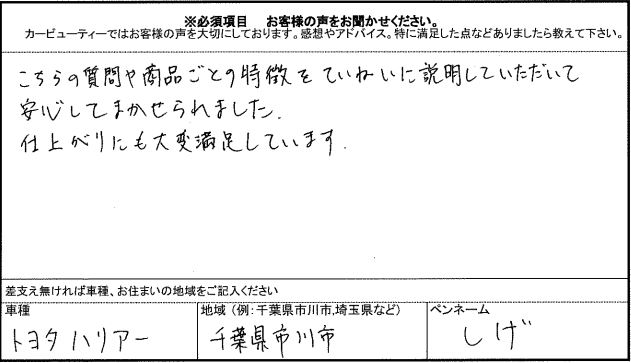 ※必須項目　お客様の声をお聞かせください。
カービューティーではお客様の声を大切にしております。感想やアドバイス。特に満足した点などありましたら教えて下さい。
こちらの質問や商品ごとの特徴をていねいに説明していただいて
安心してまかせられました.
仕上がりにも大変満足しています.
差支え無ければ車種、お住まいの地域をご記入ください
車種　地域（例：千葉県市川市,埼玉県など）　ペンネーム
トヨタ ハリアー　千葉県市川市　しげ